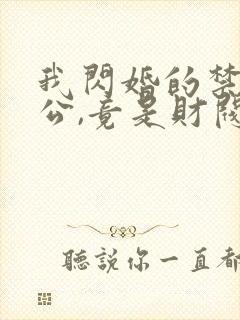 我閃婚的禁
公,竟是財閥
聽說你一直都